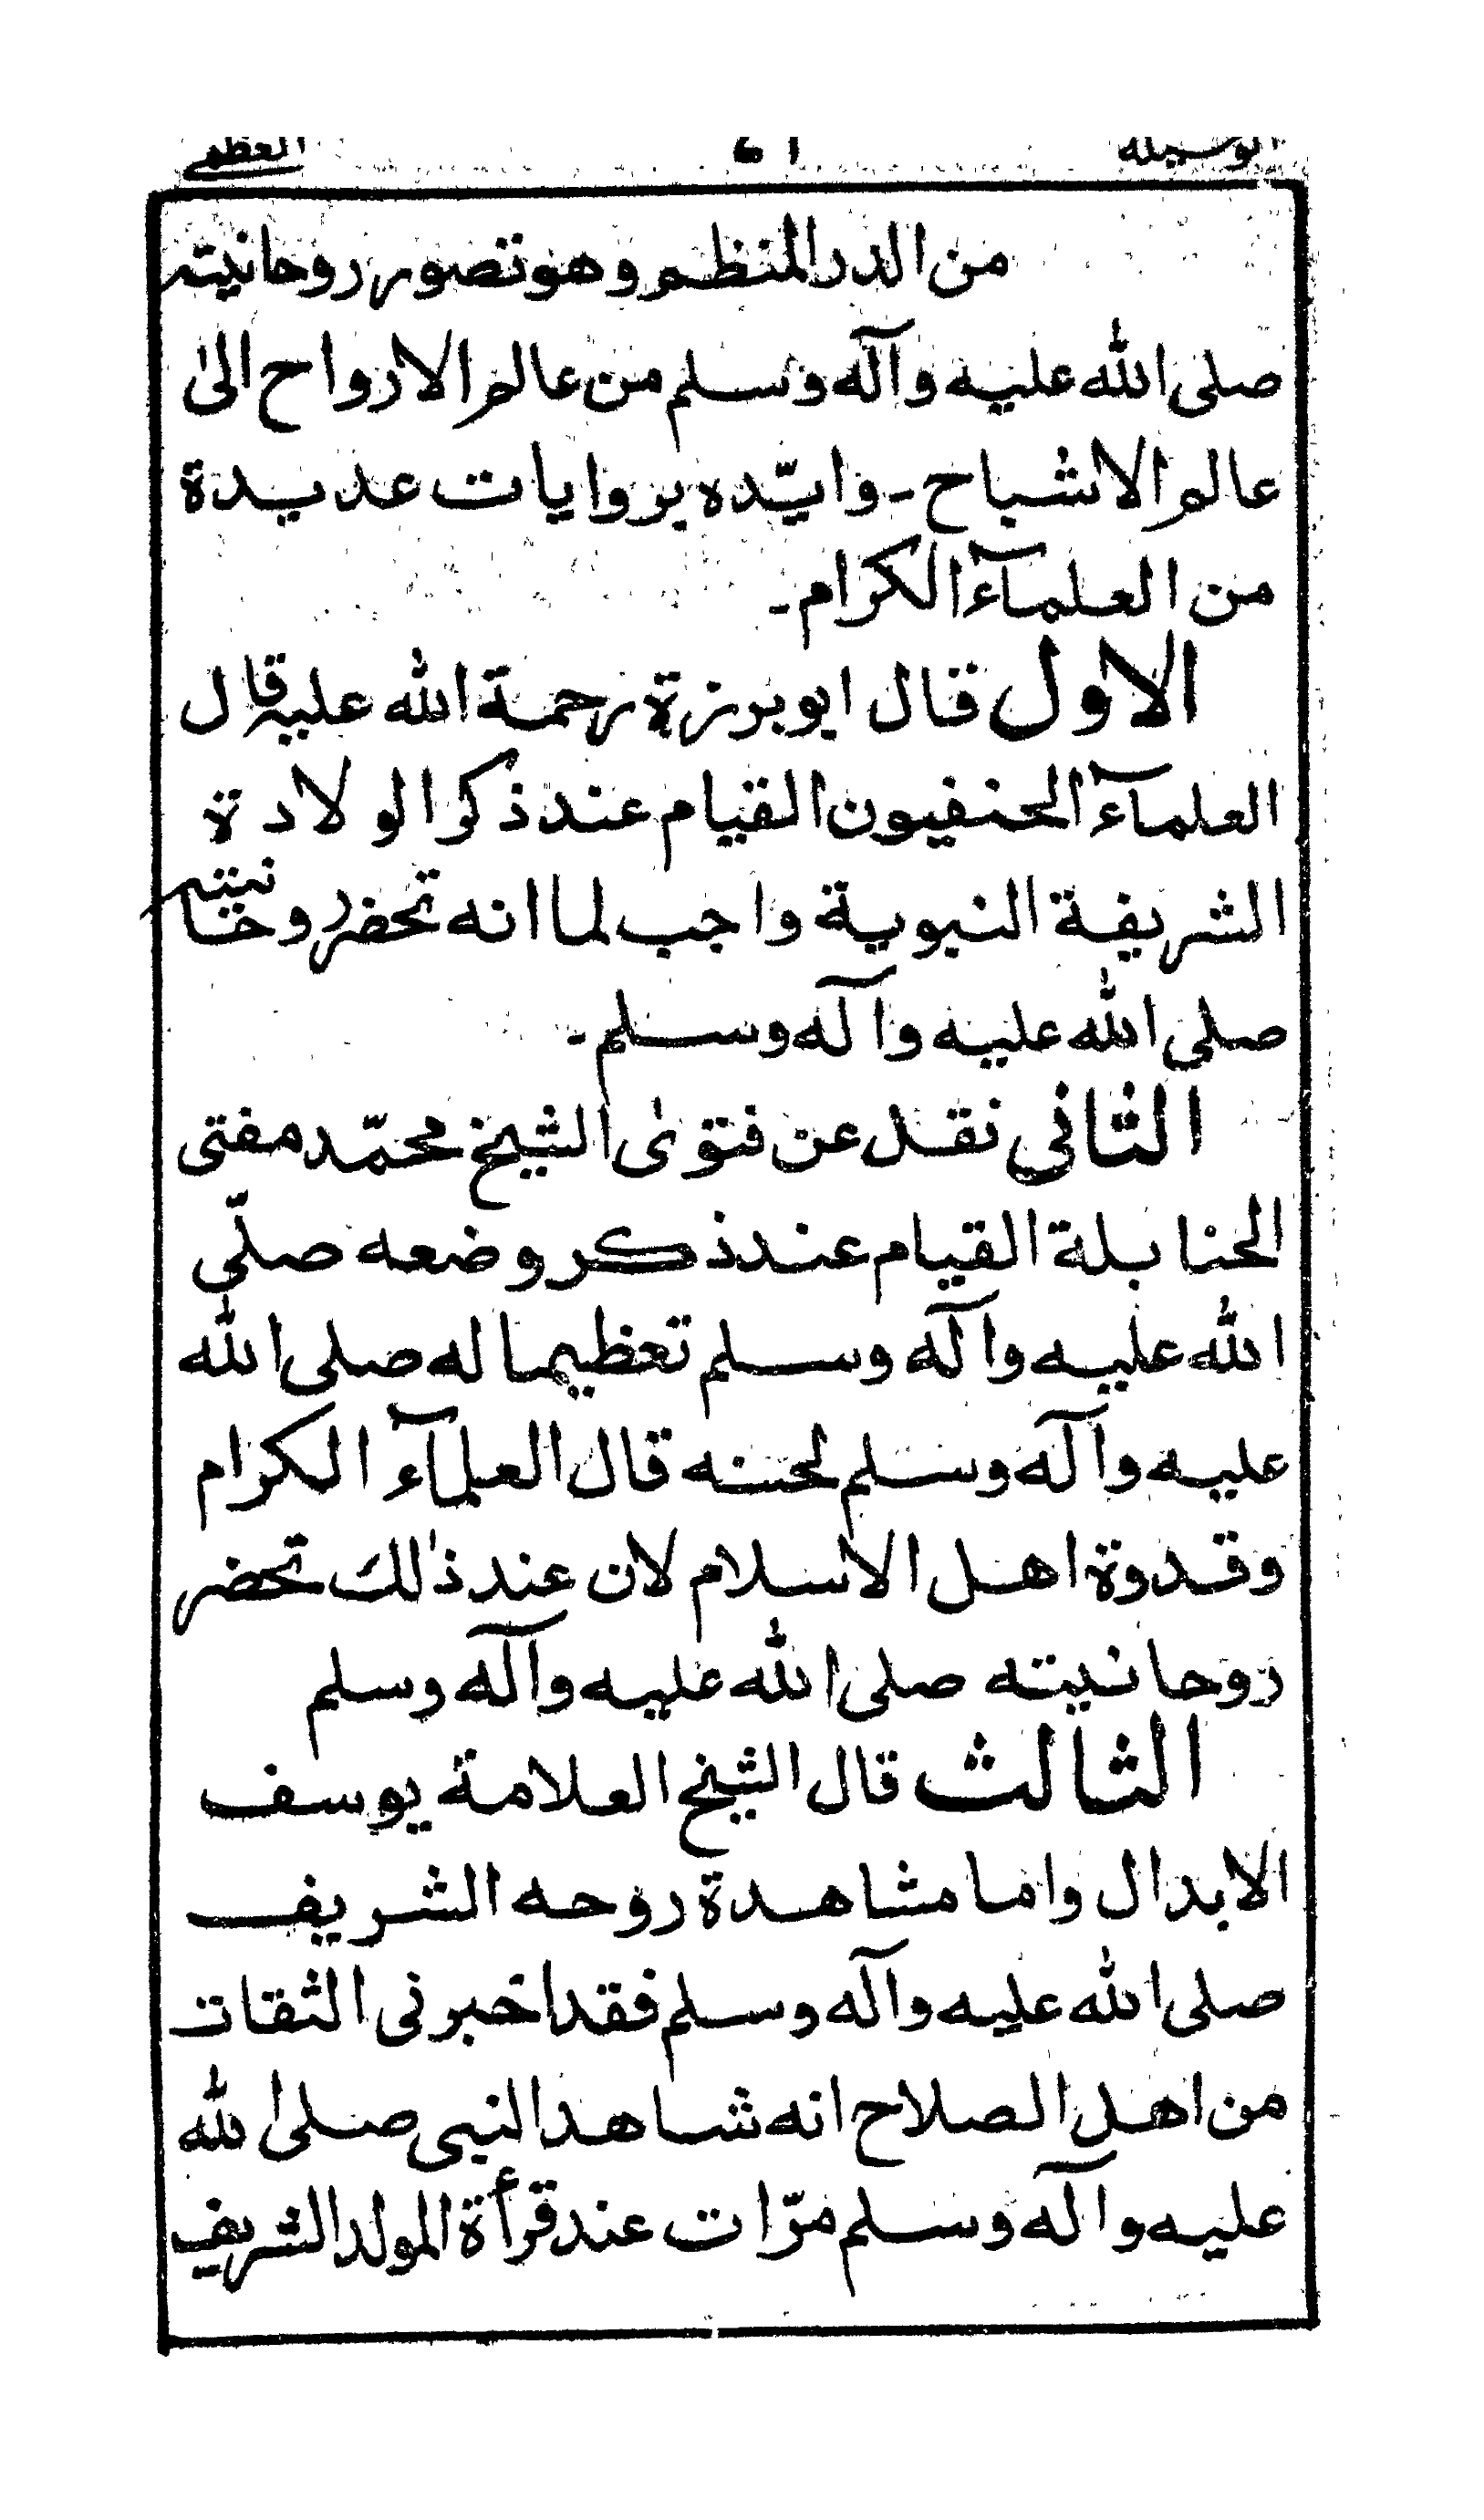 الوسيلة العظمى
من الدر المنظم وهو تصور روحانيته
صلى الله عليه وآله وسلم من عالم الارواح الىٰ
عالم الاشباح - وايّده بروايات عديدة
من العلمآء الكرام -
الاول قال ابو برزة رحمة الله عليه قال
العلمآء الحنفيون القيام عند ذكر الولادة
الشريفة النبوية واجب لما انه تحضر روحانيته
صلى الله عليه وآله وسلم -
الثانى نقل عن فتوىٰ الشيخ محمّد مفتى
الحنابلة القيام عند ذكر وضعه صلّى
الله عليه وآله وسلم تعظيما له صلى الله
عليه وآله وسلم لحسنه قال العلمآء الكرام
وقدوة اهل الاسلام لان عند ذٰلك تحضر
روحانيته صلى الله عليه وآله وسلم
الثالث قال الشيخ العلامة يوسف
الابدال واما مشاهدة روحه الشريف
صلى الله عليه وآله وسلم فقد اخبرنى الثقات
من اهل الصلاح انه شاهد النبى صلى الله
عليه وآله وسلم مرّات عند قرأة المولد الشريف